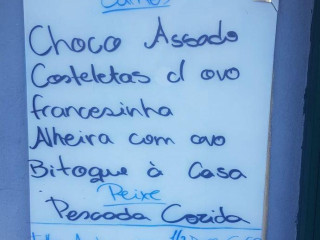 Carnes
Choco Assado
Costeletas c/ ovo
francesinha
Alheira com ovo
Bitoque à Casa
Peixe
Pescada Cozida